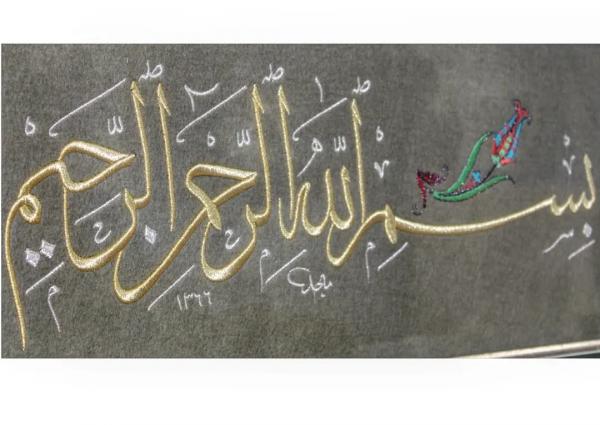 بسم الله الرحمن الرحيم
ماجد
١٣٦٦